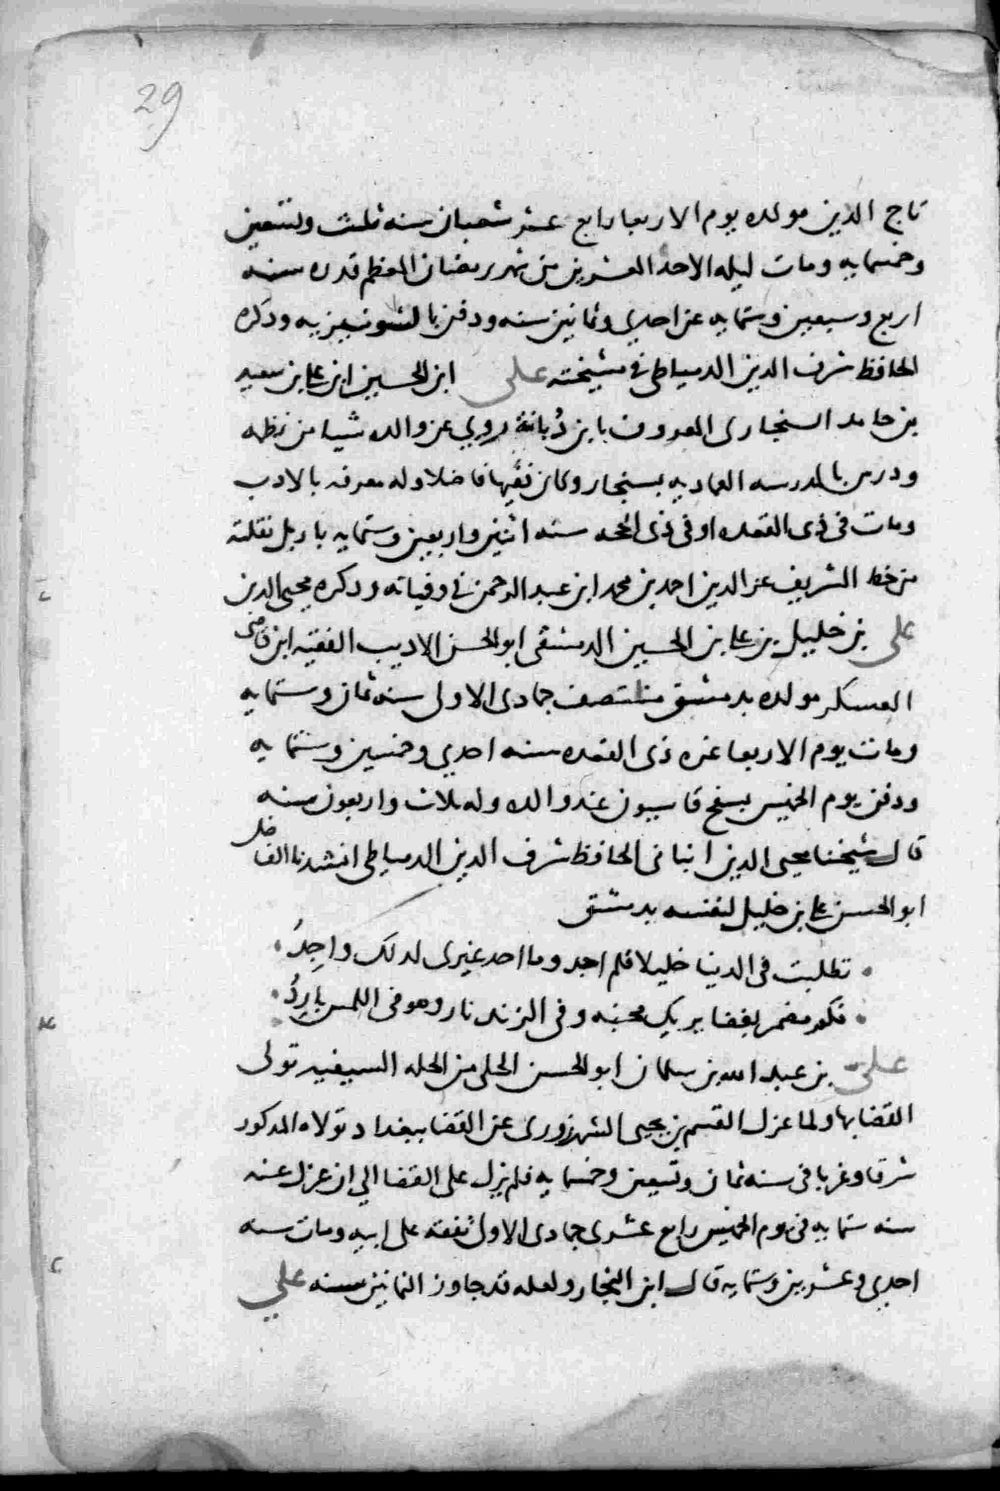 29
تاج الدين مولده يوم الاربعا رابع عشر شعبان سنه ثلث وتسعين
وخمسمايه ومات ليله الاحد العشرين من شهر رمضان المعظم قدره سنه
اربع وسبعين وستمايه عن احدي وثمانين سنه ودفن بالشونيزيه وذكره
الحافظ شرف الدين الدمياطى في مشيخته على ابن الحسين ابن على بن سعيد
بن حامد السنجارى المعروف بابن دُبابة روي عن والده شيا من نظمه
ودرس بالمدرسه العماديه بسنجار وكان فقيها فاضلا وله معرفه بالادب
ومات فى ذى القعده او فى ذى الحجه سنه اثنين واربعين وستمايه باربل نقلته
من خط الشريف عز الدين احمد بن محمد ابن عبد الرحمن في وفياته وذكره محيى الدين
على بن خليل بن على بن الحسين الدمشقى ابو الحسن الاديب الفقيه ابن قاضى
العسكر مولده بدمشق منتصف جمادى الاولى سنه ثمان وستمايه
ومات يوم الاربعا غره ذى القعده سنه احدي وخمسين وستمايه
ودفن يوم الخميس بسفح قاسيون عند والده وله ثلاث واربعون سنه
قال شيخنا محيى الدين انبانى الحافظ شرف الدين الدمياطى انشدنا الفاضل
ابو الحسن على بن خليل لنفسه بدمشق
تطلبت فى الدنيا خليلا فلم اجد وما احد غيرى لذلك واجِدُ
فكم مضمر بغضا يريك محبه وفى الزند نار وهو فى اللمس بارِدُ
على بن عبد الله بن سلمان ابو الحسن الحلى من الحله السيفيه تولى
القضا بها ولما عزل القسم بن يحيى الشهرزورى عن القضا ببغداد تولاه المذكور
شرقا وغربا فى سنه ثمان وتسعين وخمسمايه فلم يزل على القضا الي ان عزل عنه
سنه ستمايه فى يوم الخميس رابع عشرى جمادى الاول تفقه على ابيه ومات سنه
احدي وعشرين وستمايه قال ابن النجار ولعله قد جاوز الثمانين سنه علي